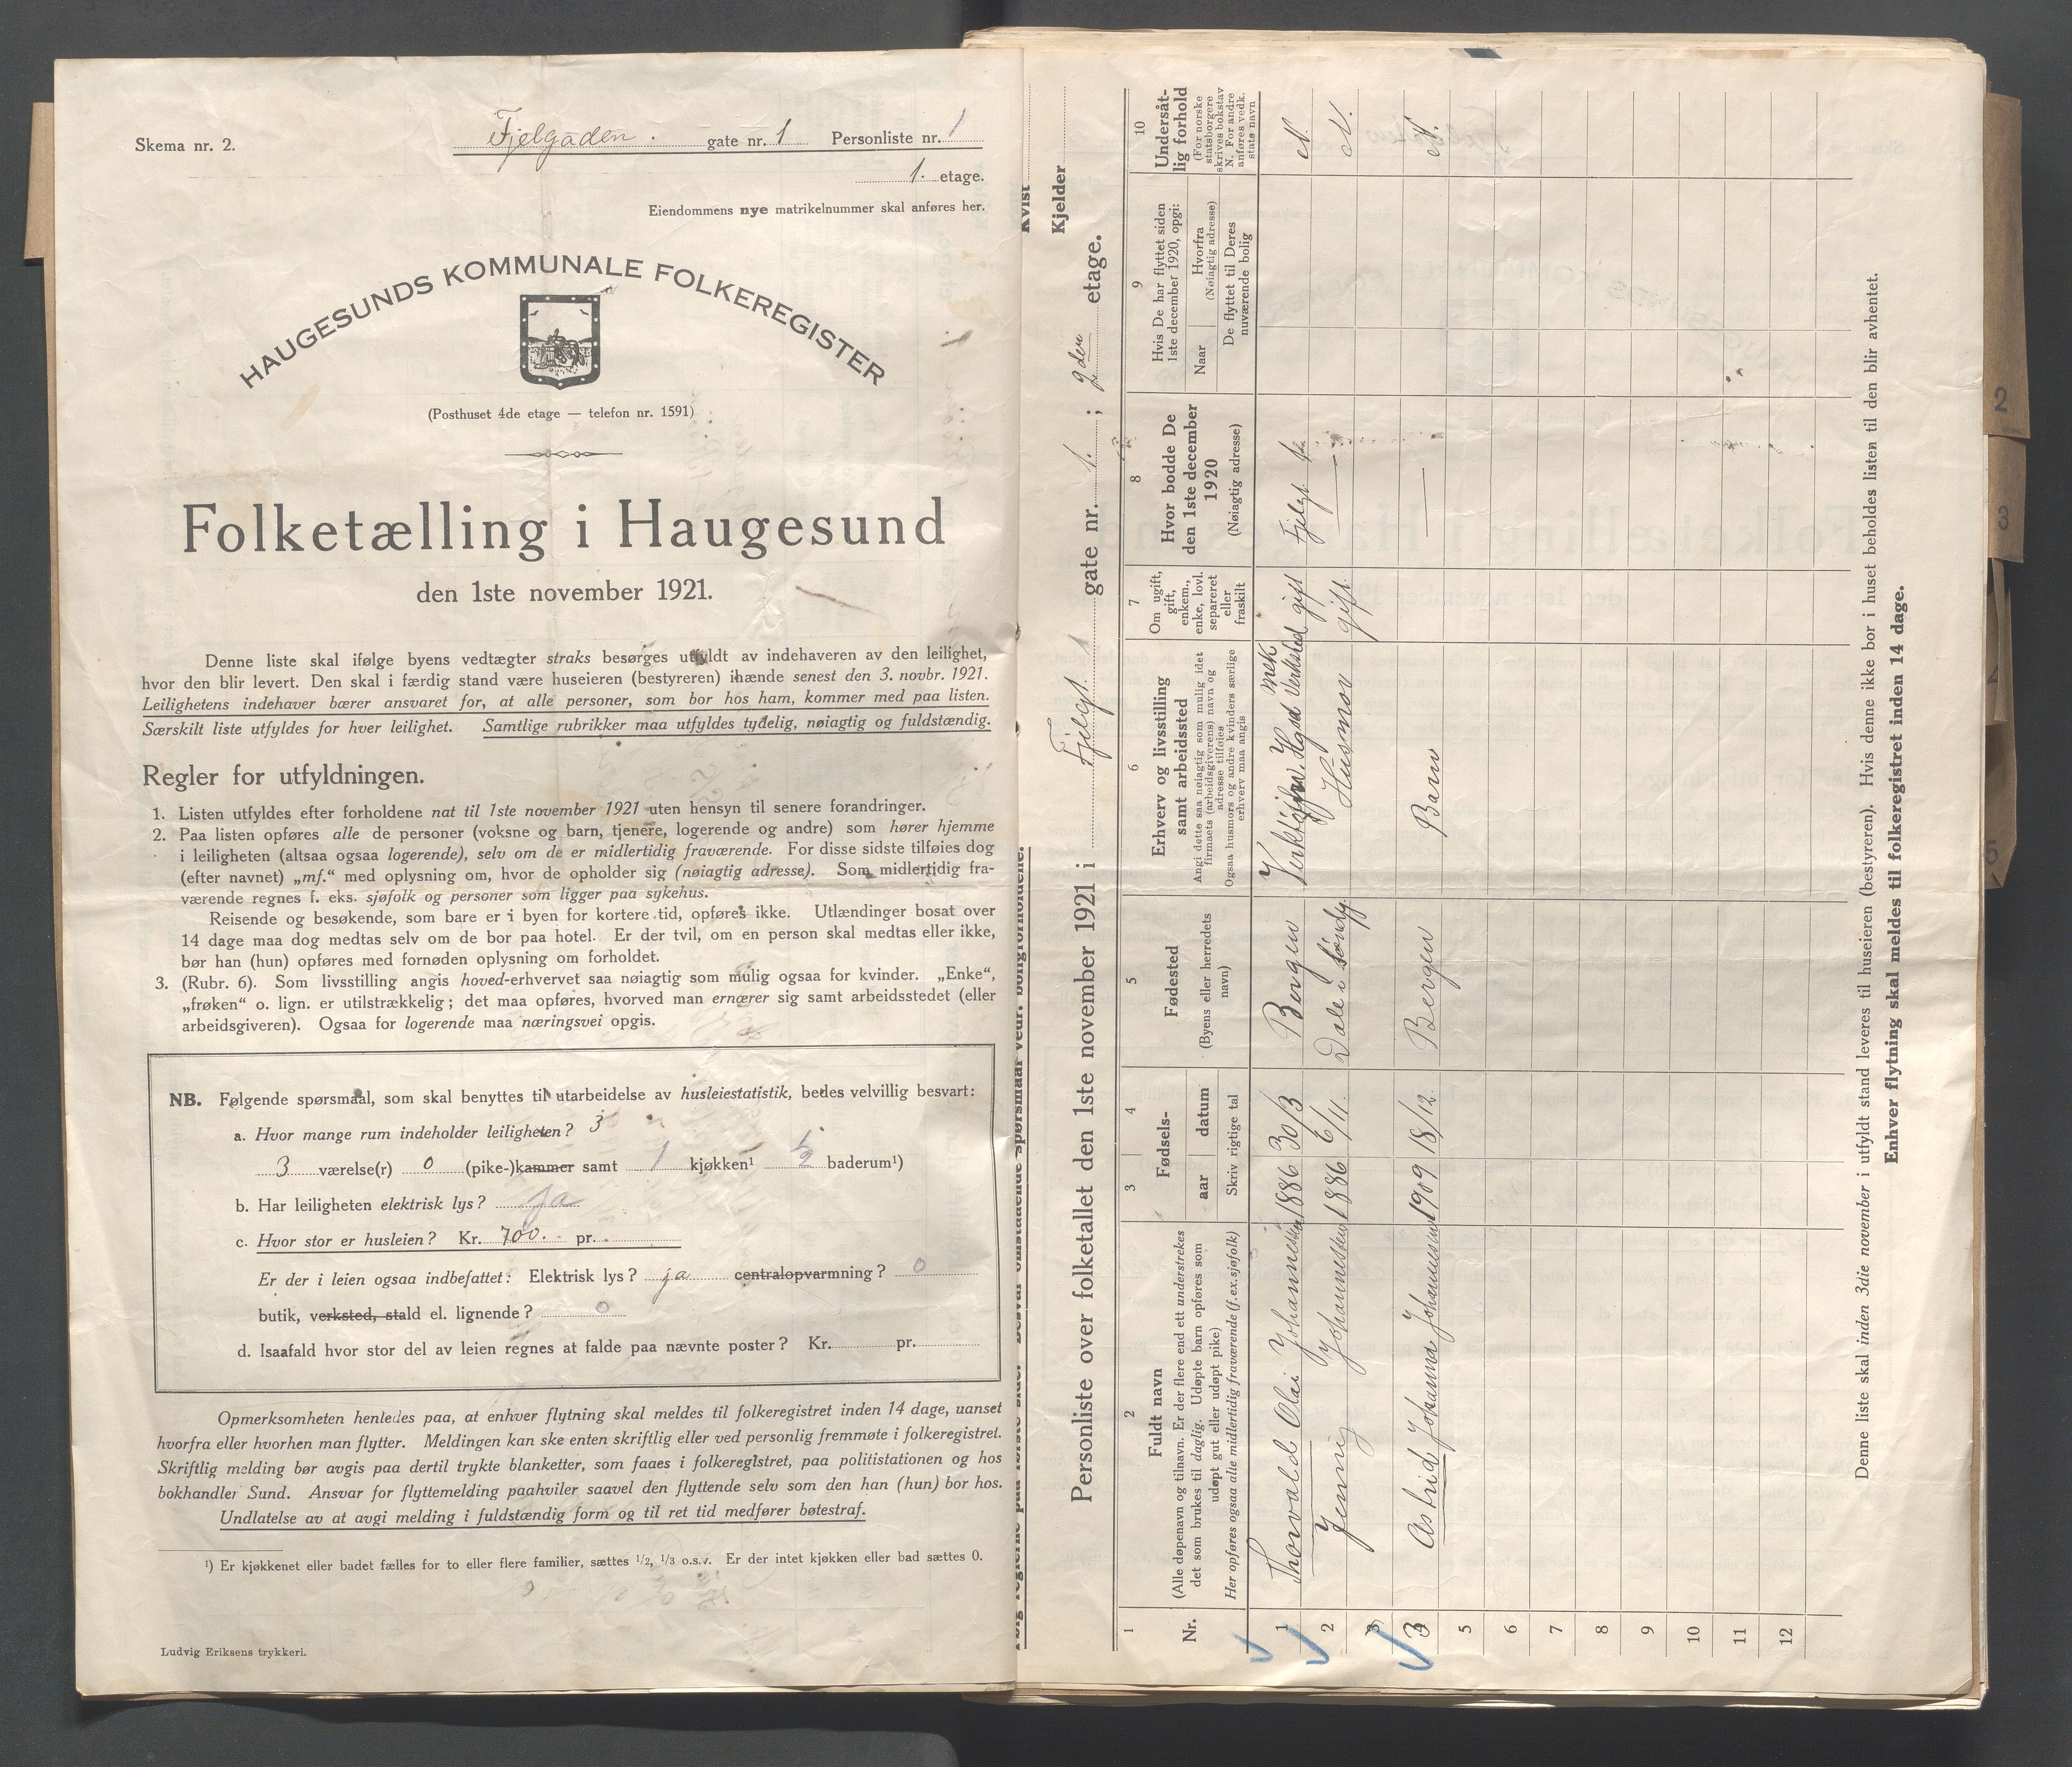 Skema nr. 2.
Fjelgaden. gate nr. 1 Personliste nr. 1
1. etage.
Eiendommens nye matrikelnummer skal anføres her.
HAUGESUNDS KOMMUNALE FOLKEREGISTER
(Posthuset 4de etage — telefon nr. 1591)
Folketælling i Haugesund
den 1ste november 1921.
Denne liste skal ifølge byens vedtægter straks besørges utfyldt av indehaveren av den leilighet,
hvor den blir levert. Den skal i færdig stand være huseieren (bestyreren) ihænde senest den 3. novbr. 1921.
Leilighetens indehaver bærer ansvaret for, at alle personer, som bor hos ham, kommer med paa listen.
Særskilt liste utfyldes for hver leilighet. Samtlige rubrikker maa utfyldes tydelig, nøiagtig og fuldstændig.
Regler for utfyldningen.
1. Listen utfyldes efter forholdene nat til 1ste november 1921 uten hensyn til senere forandringer.
2. Paa listen opføres alle de personer (voksne og barn, tjenere, logerende og andre) som hører hjemme
i leiligheten (altsaa ogsaa logerende), selv om de er midlertidig fraværende. For disse sidste tilføies dog
(efter navnet) „mf.“ med oplysning om, hvor de opholder sig (nøiagtig adresse). Som midlertidig fra-
værende regnes f. eks. sjøfolk og personer som ligger paa sykehus.
Reisende og besøkende, som bare er i byen for kortere tid, opføres ikke. Utlændinger bosat over
14 dage maa dog medtas selv om de bor paa hotel. Er der tvil, om en person skal medtas eller ikke,
bør han (hun) opføres med fornøden oplysning om forholdet.
3. (Rubr. 6). Som livsstilling angis hoved-erhvervet saa nøiagtig som mulig ogsaa for kvinder. „Enke“,
„frøken“ o. lign. er utilstrækkelig; det maa opføres, hvorved man ernærer sig samt arbeidsstedet (eller
arbeidsgiveren). Ogsaa for logerende maa næringsvei opgis.
NB. Følgende spørsmaal, som skal benyttes til utarbeidelse av husleiestatistik, bedes velvillig besvart:
a. Hvor mange rum indeholder leiligheten? 3
3 værelse(r) 0 (pike-)kammer samt 1 kjøkken¹ ½ baderum¹)
b. Har leiligheten elektrisk lys? ja
c. Hvor stor er husleien? Kr. 700. pr.
Er der i leien ogsaa indbefattet: Elektrisk lys? ja centralopvarmning? 0
butik, verksted, stald el. lignende? 0
d. Isaafald hvor stor del av leien regnes at falde paa nævnte poster? Kr. pr.
Opmerksomheten henledes paa, at enhver flytning skal meldes til folkeregistret inden 14 dage, uanset
hvorfra eller hvorhen man flytter. Meldingen kan ske enten skriftlig eller ved personlig fremmøte i folkeregistret.
Skriftlig melding bør avgis paa dertil trykte blanketter, som faaes i folkeregistret, paa politistationen og hos
bokhandler Sund. Ansvar for flyttemelding paahviler saavel den flyttende selv som den han (hun) bor hos.
Undlatelse av at avgi melding i fuldstændig form og til ret tid medfører bøtestraf.
¹) Er kjøkkenet eller badet fælles for to eller flere familier, sættes 1/2, 1/3 o.s.v. Er der intet kjøkken eller bad sættes 0.
Ludvig Eriksens trykkeri.
Kvist
Kjelder
Personliste over folketallet den 1ste november 1921 i Fjelgt. 1 gate nr. 1. ; 2den etage.
1 2 3 4 5 6 7 8 9 10
Nr.
Fuldt navn
(Alle døpenavn og tilnavn. Er der flere end ett understrekes
det som brukes til daglig. Udøpte barn opføres som
udøpt gut eller udøpt pike)
Her opføres ogsaa alle midlertidig fraværende (f.ex.sjøfolk)
Fødsels-
aar datum
Skriv rigtige tal
Fødested
(Byens eller herredets
navn)
Erhverv og livsstilling
samt arbeidssted
Angi dette saa nøiagtig som mulig idet
firmaets (arbeidsgiverens) navn og
adresse tilføies
Ogsaa husmors og andre kvinders særlige
erhverv maa angis
Om ugift,
gift,
enkem.,
enke, lovl.
separeret
eller
fraskilt
Hvor bodde De
den 1ste december
1920
(Nøiagtig adresse)
Hvis De har flyttet siden
1ste december 1920, opgi:
Naar Hvorfra
(Nøiagtig adresse)
De flyttet til Deres
nuværende bolig
Undersåt-
lig forhold
(For norske
statsborgere
skrives bokstav
N. For andre
anføres vedk.
stats navn
1 Thorvald Olai Johannesen 1886 30/3 Bergen Hgsd mek Verksted gift Fjelgt. N.
2 Jenny Johannessen 1886 6/11. Dale i Søndfj. Husmor gift. — N.
3
3 Astrid Johanna Johannessen 1909 18/12. Bergen Barn — N.
5
6
7
8
9
10
11
12
Denne liste skal inden 3die november i utfyldt stand leveres til huseieren (bestyreren). Hvis denne ikke bor i huset beholdes listen til den blir avhentet.
Enhver flytning skal meldes til folkeregistret inden 14 dage.
2
3